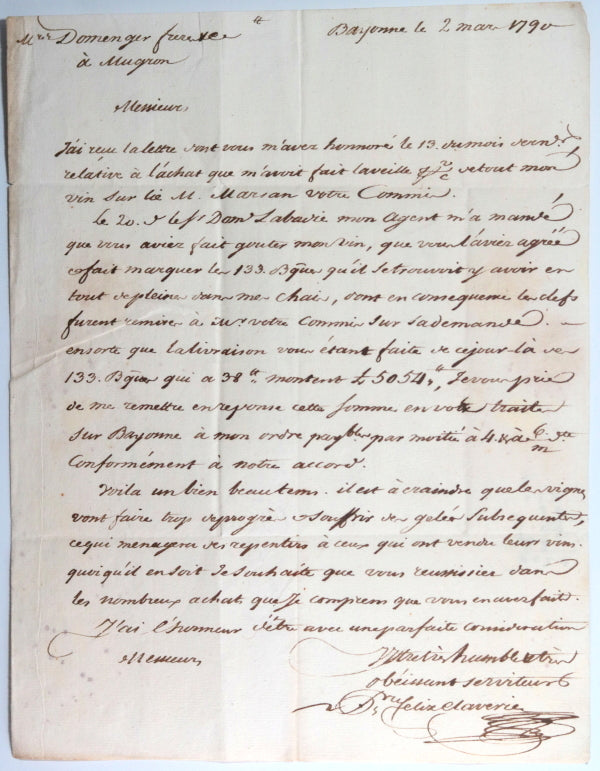 Mrs. Domenger freres Bayonne le 2 mars 1790
à Mugron
Messieurs
J'ai reçu la lettre dont vous m'avez honnoré le 13. du mois dern.
relative à l'achat que m'avoit fait la veille de tout mon
vin sur lie M. Marsan votre Commis.
le 20. le Sr. Dom. Labadie mon agent m'a mandé
que vous aviez fait gouter mon vin, que vous l'aviez agréé
& fait marquer les 133. Bques qu'il se trouvoit y avoir en
tout de pleines dans mes chais, dont en consequence les clefs
furent remises à Mr. votre Commis sur sa demande.
ensorte que la livraison vous étant faite de ce jour là des
133. Bques qui a 38tt. montent £5054tt, Je vous prie
de me remettre en reponse cette somme en votre traite
sur Bayonne à mon ordre payble par moitié à 4. & à 6/m dte
Conformément à notre accord.
Voila un bien beau tems. il est à craindre que les vignes
vont faire trop de progrès & souffrir des gelées subsequentes,
ce qui menagera des repentirs à ceux qui ont vendu leurs vins.
quoiqu'il en soit Je souhaite que vous reussissiez dans
les nombreux achats que Je comprens que vous en avez fait.
J'ai l'honneur d'être avec une parfaite consideration
Messieurs Votre très humble & très
obéissant serviteur
Felix Claverie